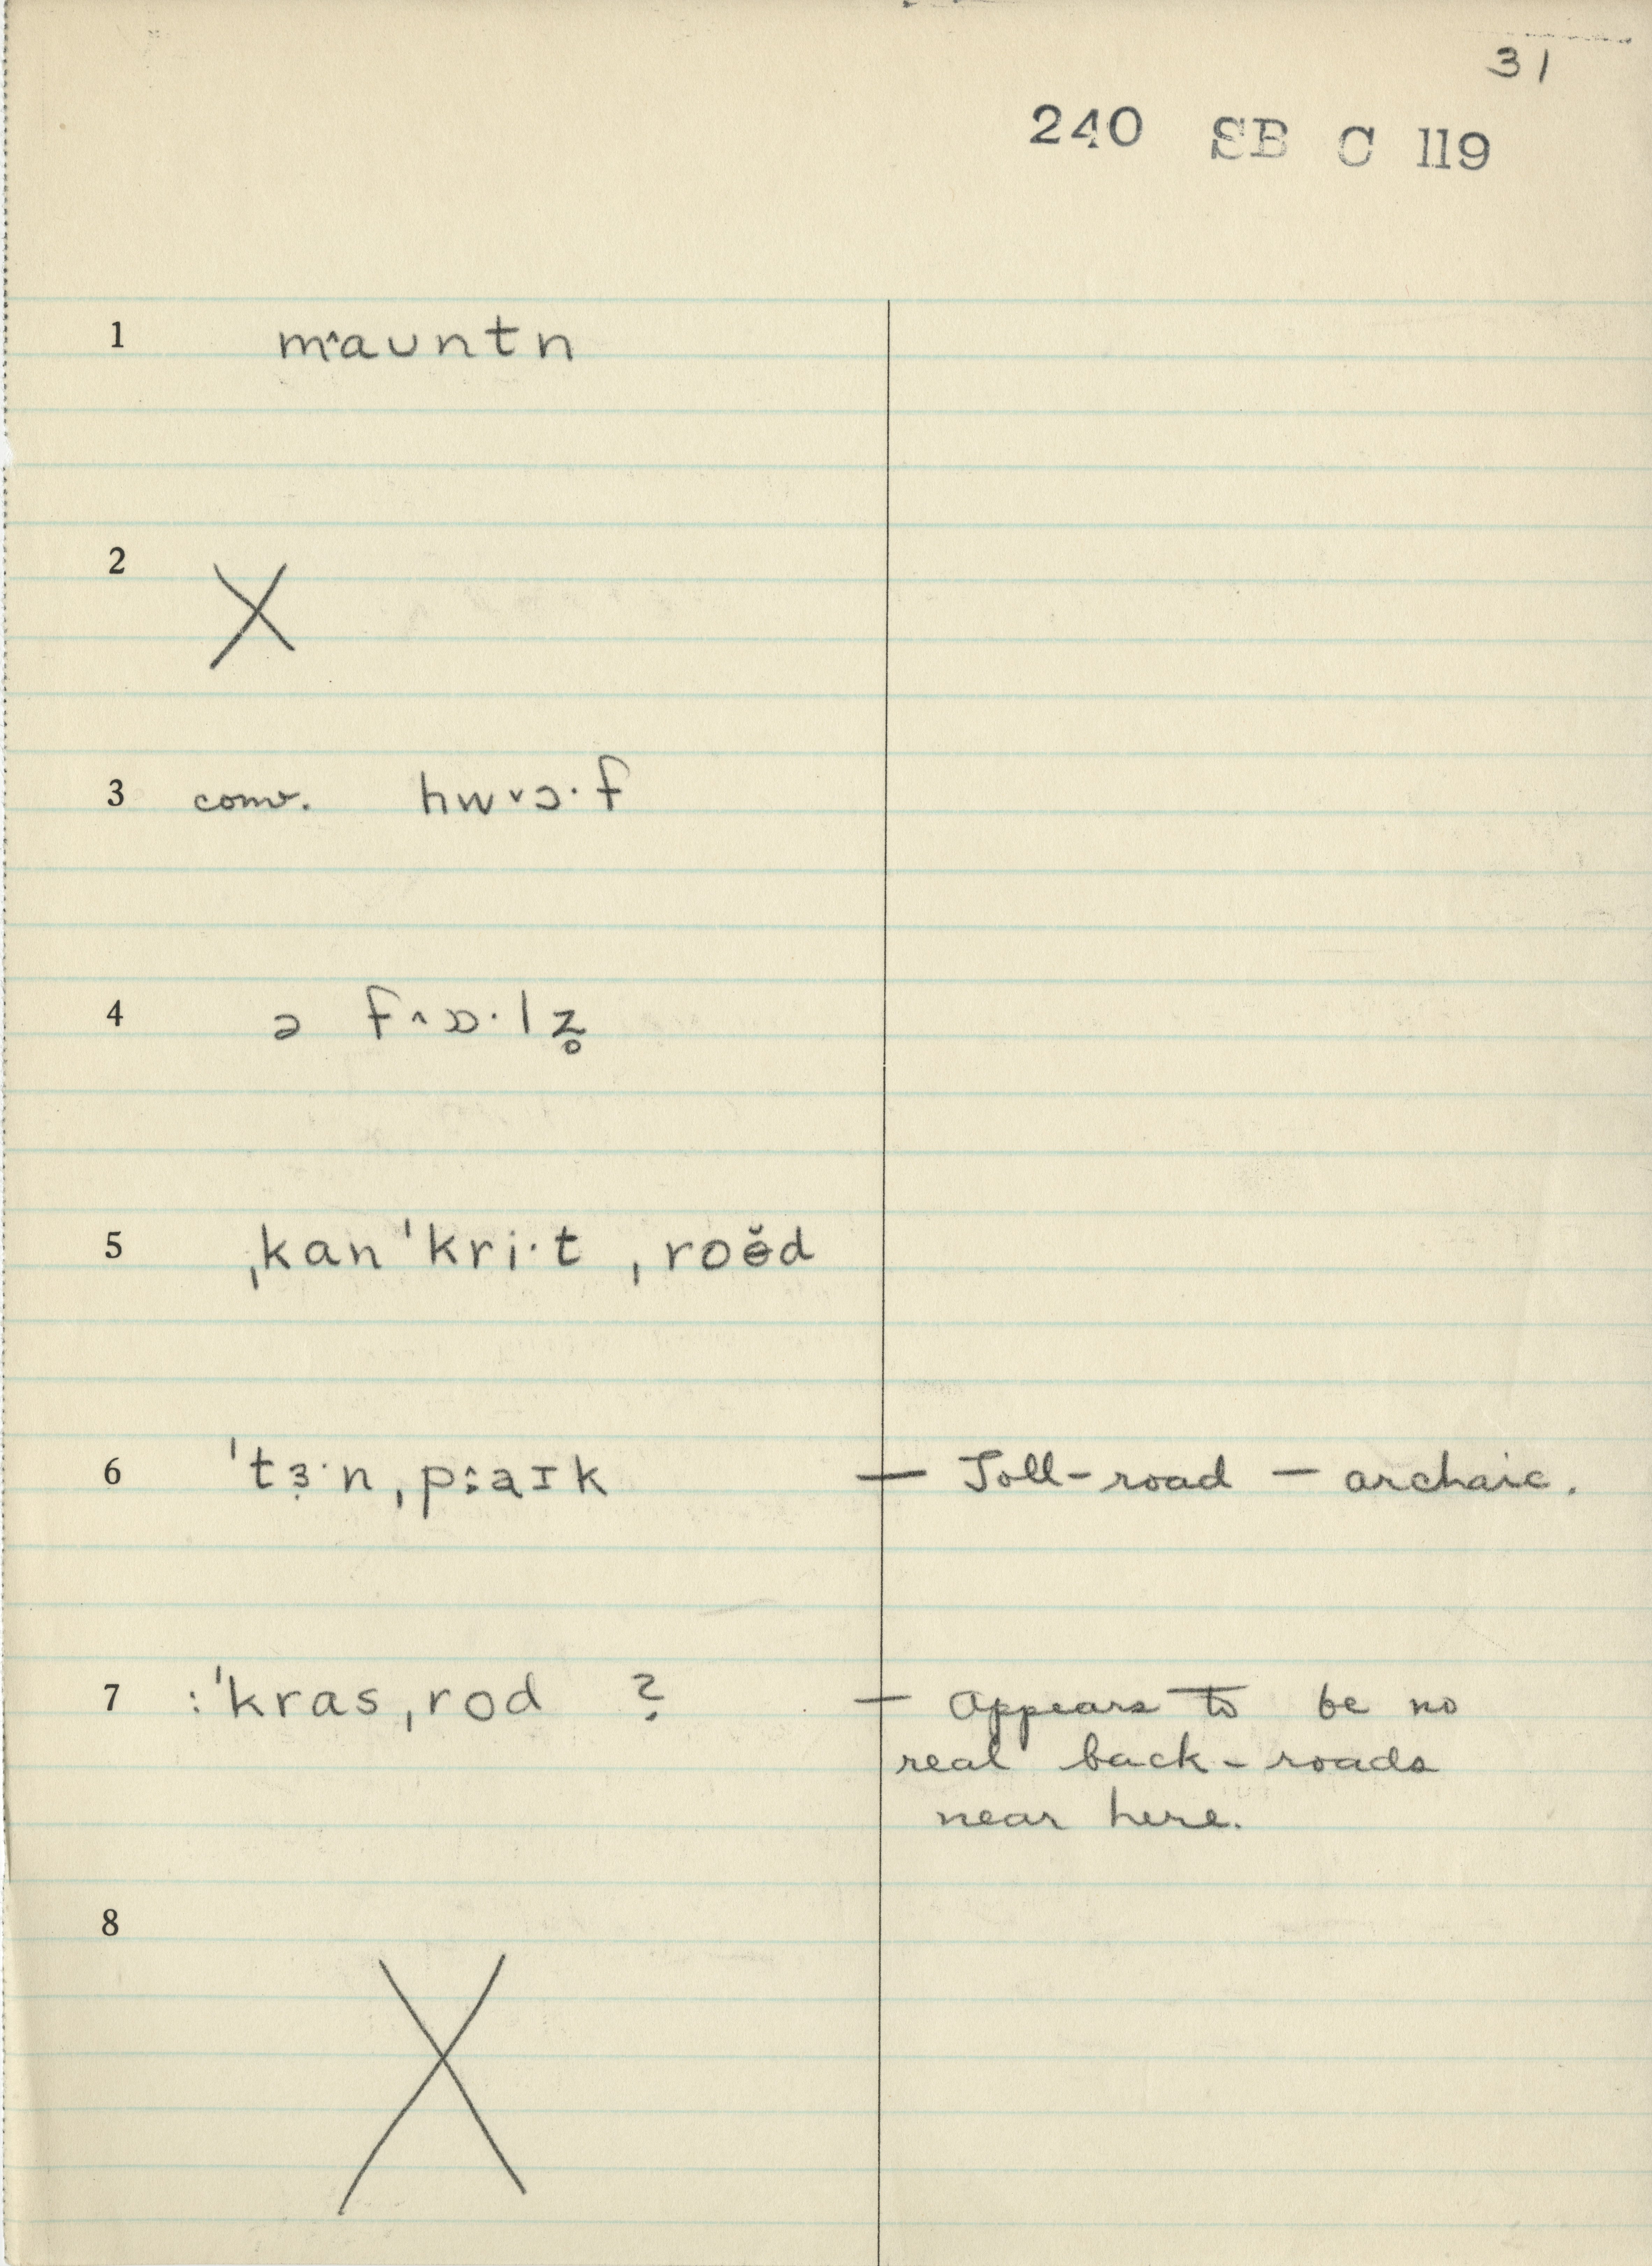 31
240 SB C 119
1 m˄aʊntn
2 X
3 conv. hw˅ɔ·f
4 ə f˄ɒ·lz̥
5 ˌkanˈkri·t ˌroɵ̆d
6 ˈtɜ˞·nˌp:aɪk — Toll-road — archaic.
7 :ˈkrasˌrod ? — Appears to be no
real back-roads
near here.
8 X